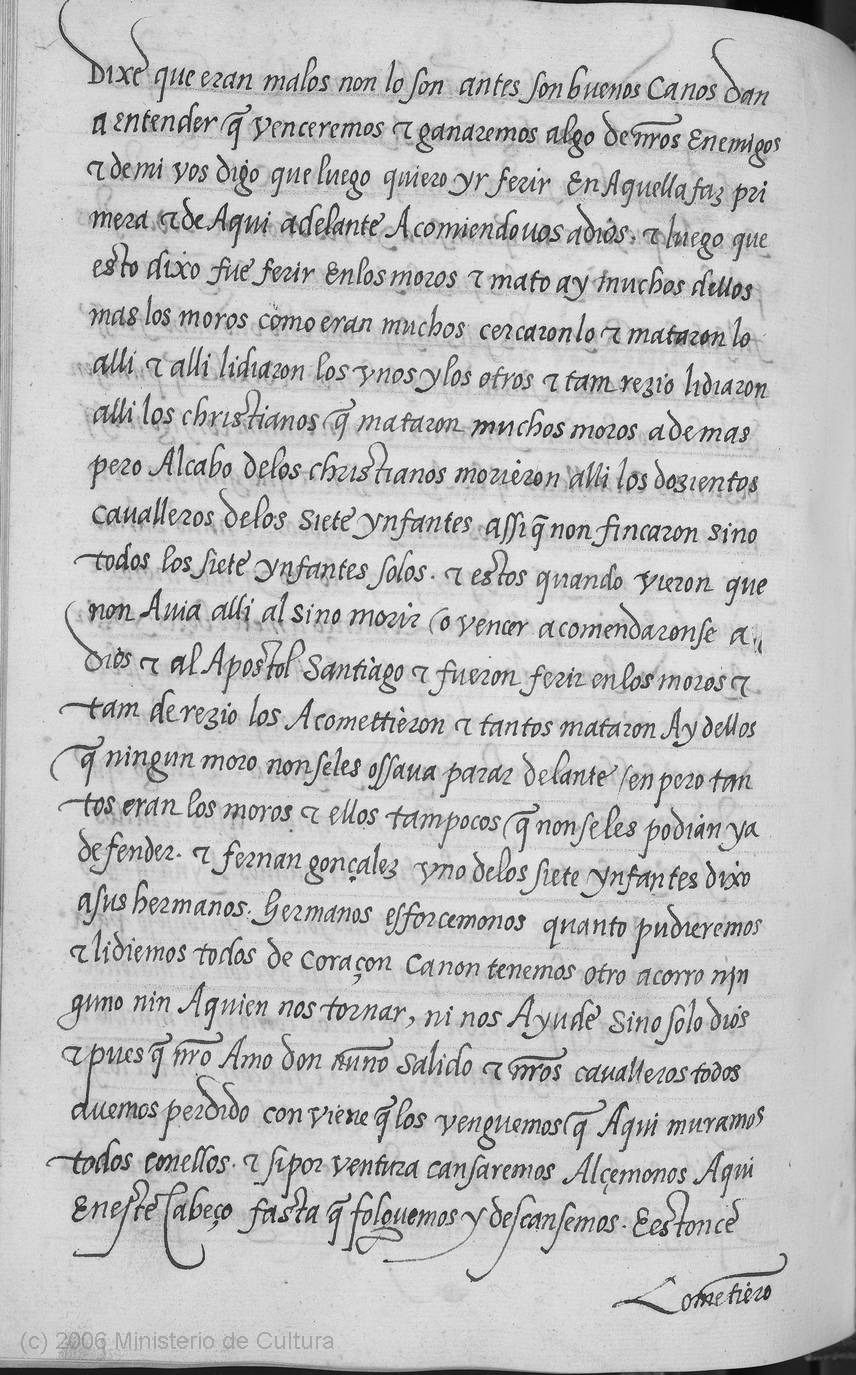 Dixe que eran malos non lo son antes son buenos Ca nos dan
a entender q̃ venceremos ⁊ ganaremos algo de nr̃os Enemigos
⁊ de mi vos digo que luego quiero yr ferir En Aquella faz pri
mera ⁊ de Aqui adelante Acomiendo uos a dios. ⁊ luego que
esto dixo fue ferir En los moros ⁊ mato ay muchos dellos
mas los moros como eran muchos cercaron lo ⁊ mataron lo
alli ⁊ alli lidiaron los vnos y los otros ⁊ tam rezio lidiaron
alli los christianos q̃ mataron muchos moros ademas
pero Al cabo de los christianos morieron alli los dozientos
cavalleros de los siete ynfantes assi q̃ non fincaron sino
todos los siete ynfantes solos. ⁊ estos quando vieron que
non Avia alli al sino morir o vencer acomendaronse a
Dios ⁊ al Apostol Santiago ⁊ fueron ferir en los moros ⁊
tam de rezio los Acomettieron ⁊ tantos mataron Ay dellos
q̃ ningun moro non seles ossava parar delante / en pero tan
tos eran los moros ⁊ ellos tam pocos q̃ non se les podian ya
defender. ⁊ fernan gonçalez vno de los siete ynfantes dixo
a sus hermanos. Hermanos esforcemonos quanto pudieremos
⁊ lidiemos todos de coraçon Ca non tenemos otro acorro nin
guno nin Aquien nos tornar, ni nos Ayude sino solo dios
⁊ pues q̃ nr̃o Amo don nuno salido ⁊ nr̃os cavalleros todos
avemos perdido conviene q̃ los venguemos q̃ Aqui muramos
todos conellos. ⁊ si por ventura cansaremos Alçemonos Aqui
En este Cabeço fasta q̃ folguemos y descansemos. E estonce
Cometiero
(c) 2006 Ministerio de Cultura